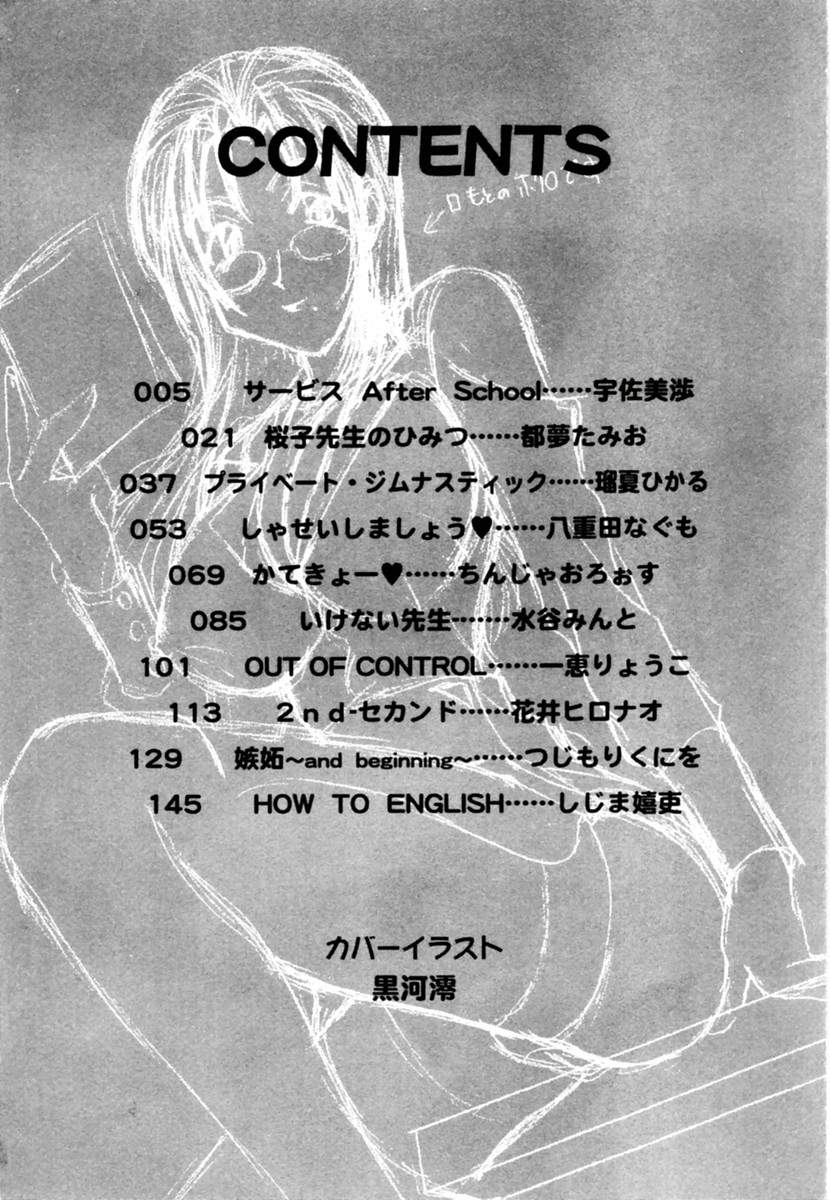 CONTENTS
005 サービス After School……宇佐美渉
021 桜子先生のひみつ……都夢たみお
037 プライベート・ジムナスティック……瑠夏ひかる
053 しゃせいしましょう♥……八重田なぐも
069 かてきょー♥……ちんじゃおろぉす
085 いけない先生……水谷みんと
101 OUT OF CONTROL……一恵りょうこ
113 2nd-セカンド……花井ヒロナオ
129 嫉妬~and beginning~……つじもりくにを
145 HOW TO ENGLISH……しじま嬉吏
カバーイラスト
黒河澪